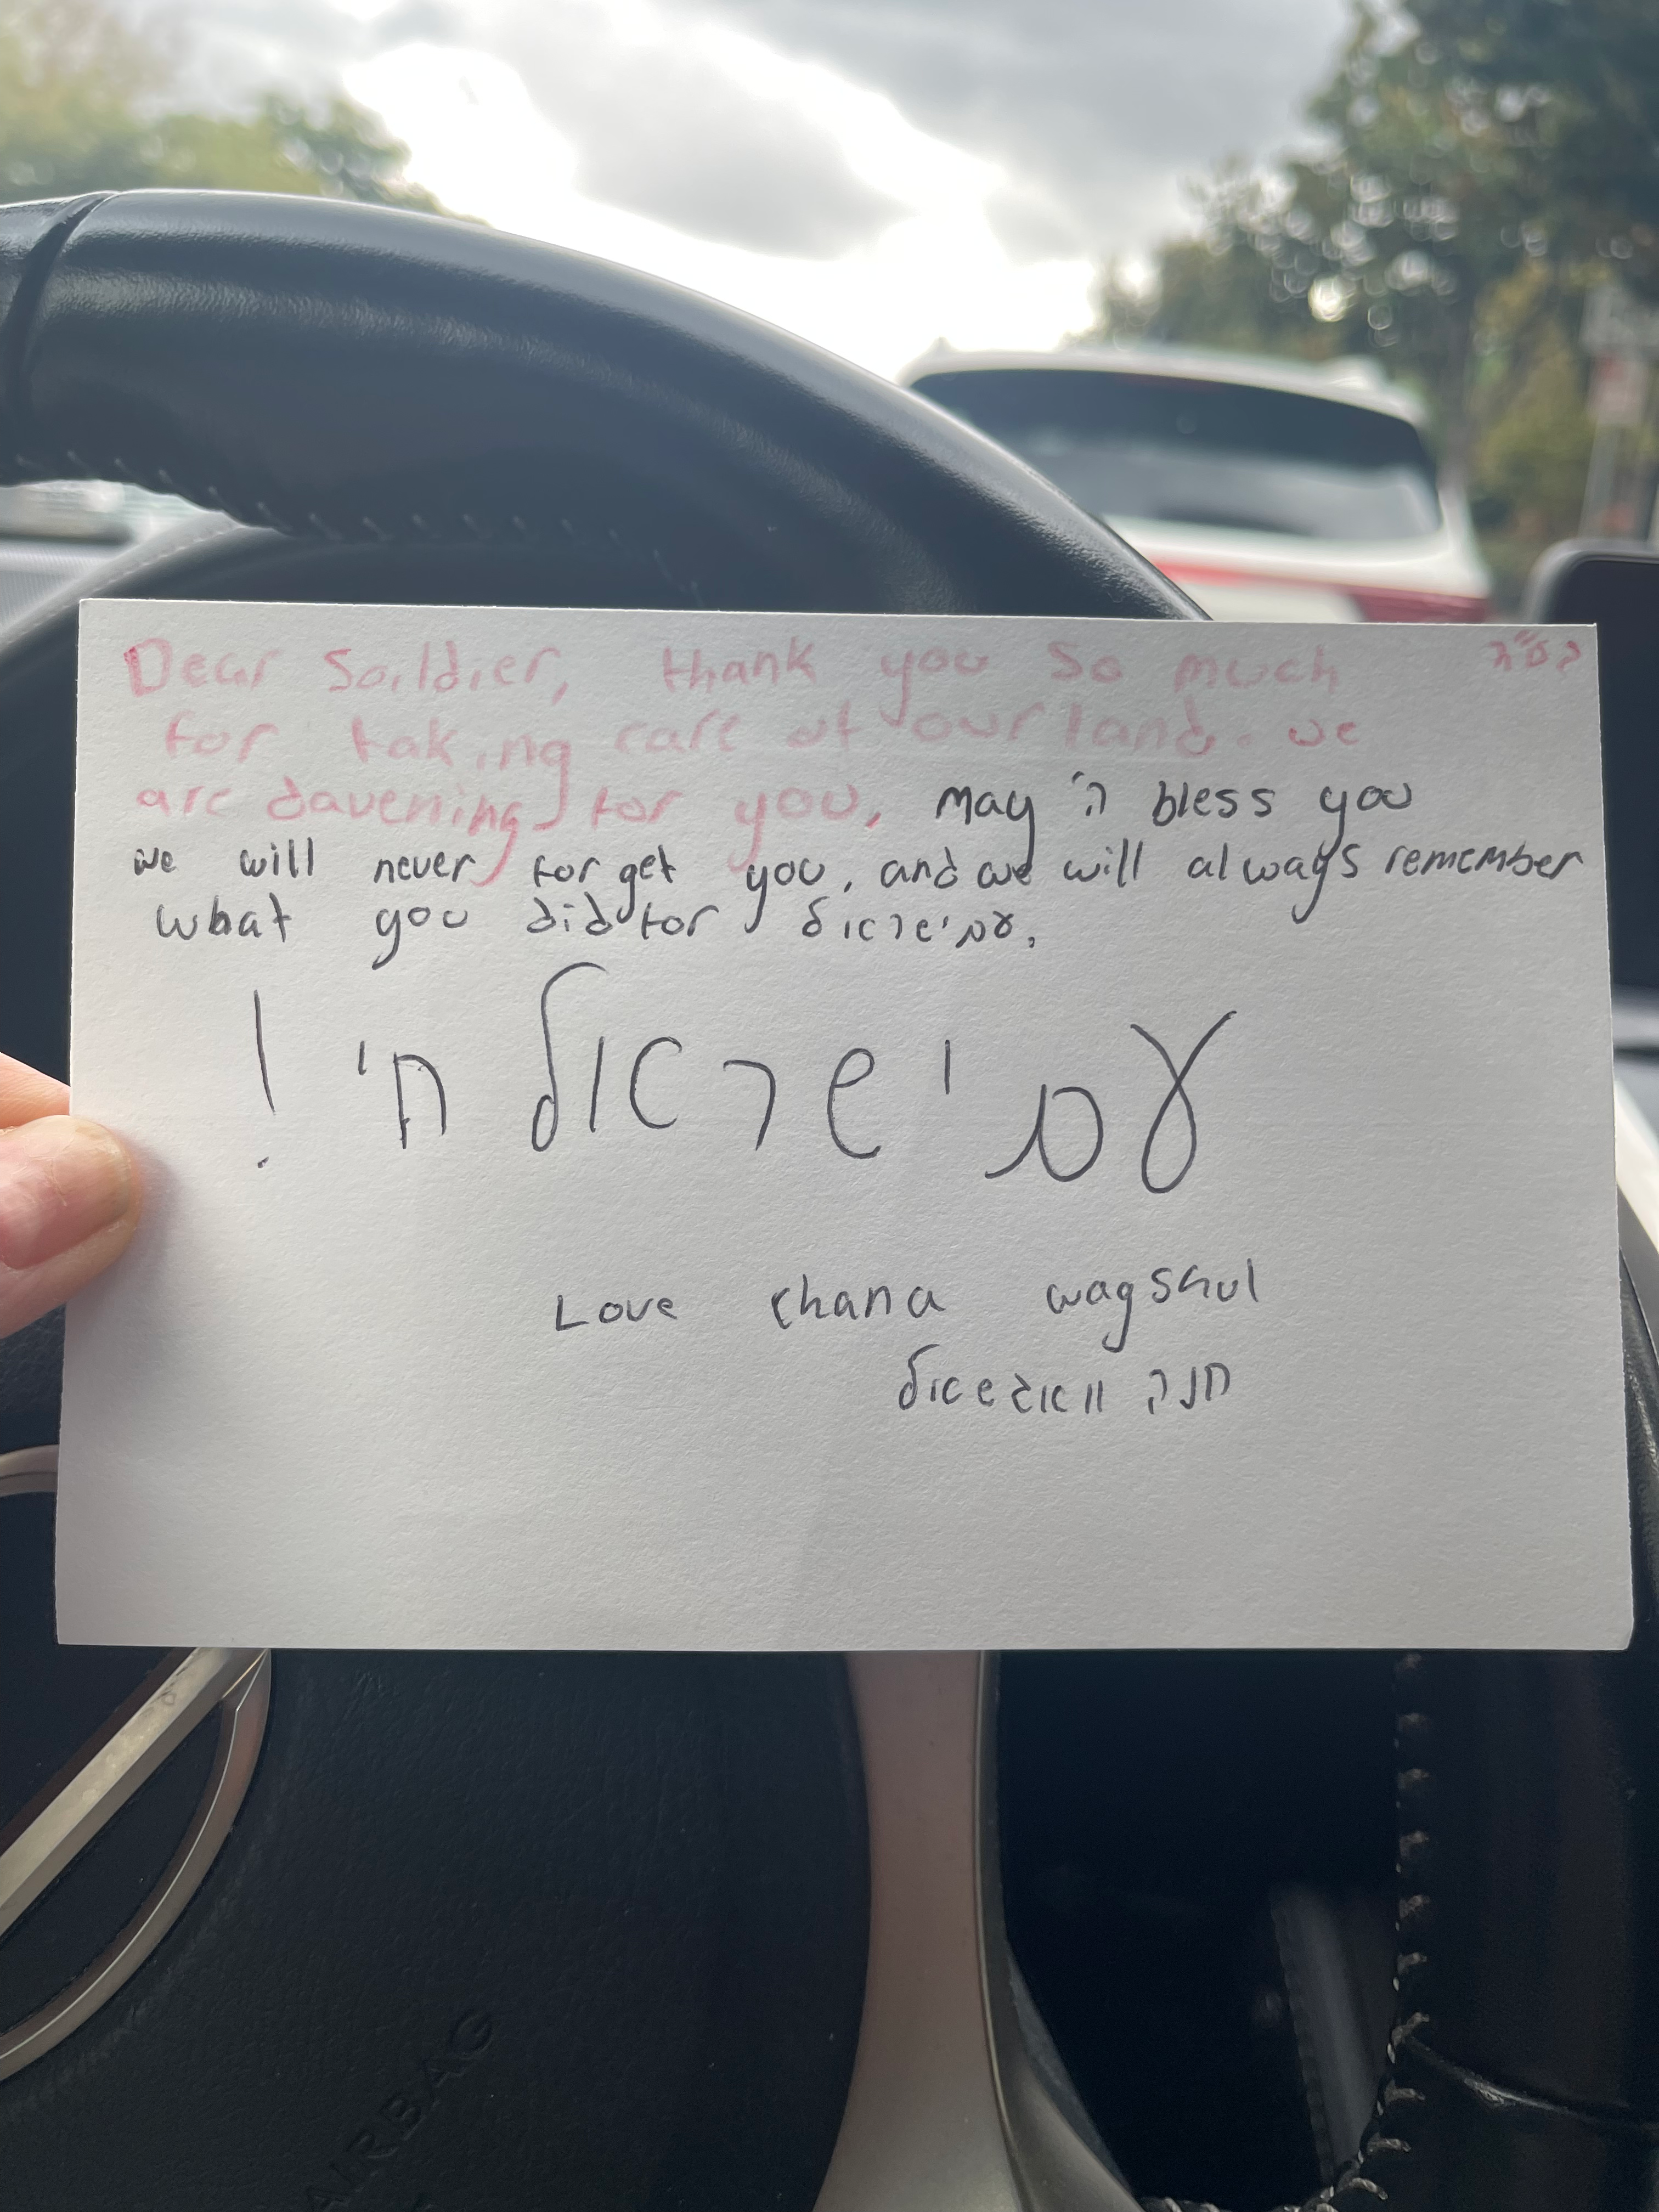 בס"ד
Dear Soildier, thank you so much
for taking care of our land. we
are davening for you, may ה' bless you
we will never forget you, and we will always remember
what you did for עם ישראל.
עם ישראל חי!
Love chana wagshul
חנה וואגשאול
AIRBAG